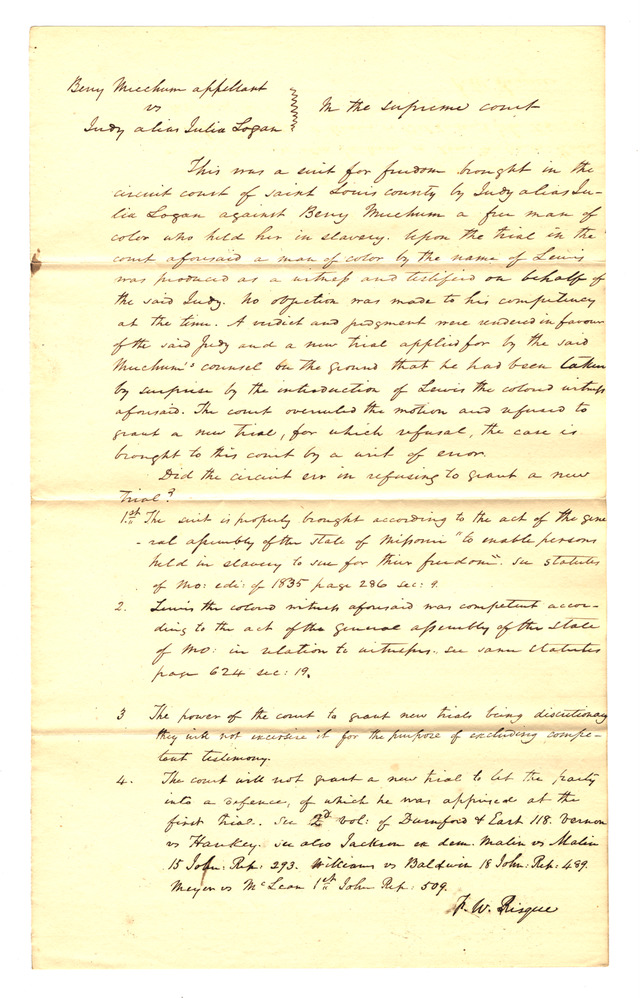 Berry Meechum appellant
vs
Judy alias Julia Logan
In the supreme court
This was a suit for freedom brought in the
circuit court of saint Louis county by Judy alias Ju-
lia Logan against Berry Meechum a free man of
color who held her in slavery. Upon the trial in the
court aforesaid a man of color by the name of Lewis
was produced as a witness and testified on behalf of
the said Judy. No objection was made to his competency
at the time. A verdict and judgment were rendered in favour
of the said Judy and a new trial applied for by the said
Meechum's counsel on the ground that he had been taken
by surprise by the introduction of Lewis the colored witness
aforesaid. The court overruled the motion and refused to
grant a new trial, for which refusal, the case is
brought to this court by a writ of error.
Did the circuit err in refusing to grant a new
trial?
1st The suit is properly brought according to the act of the gene
-ral assembly of the state of Missouri "to enable persons
held in slavery to sue for their freedom". See statutes
of Mo: edi: of 1835 page 286 sec: 9.
2. Lewis the colored witness aforesaid was competent accor-
ding to the act of the general assembly of the State
of Mo: in relation to witnesses. see same statutes
page 624 sec: 19.
3 The power of the court to grant new trials being discretionary
they will not excersise it for the purpose of excluding compe-
tent testimony.
4. The court will not grant a new trial to let the party
into a defence, of which he was apprised at the
first trial. See 2d vol: of Durnford & East 118. Vernon
vs Hankey. see also Jackson ex dem. Malin vs Malin
15 John: Rep: 293. Williams vs Baldwin 18 John: Rep: 489.
Meyer vs McLean 1st John Rep: 509.
F. W. Risque